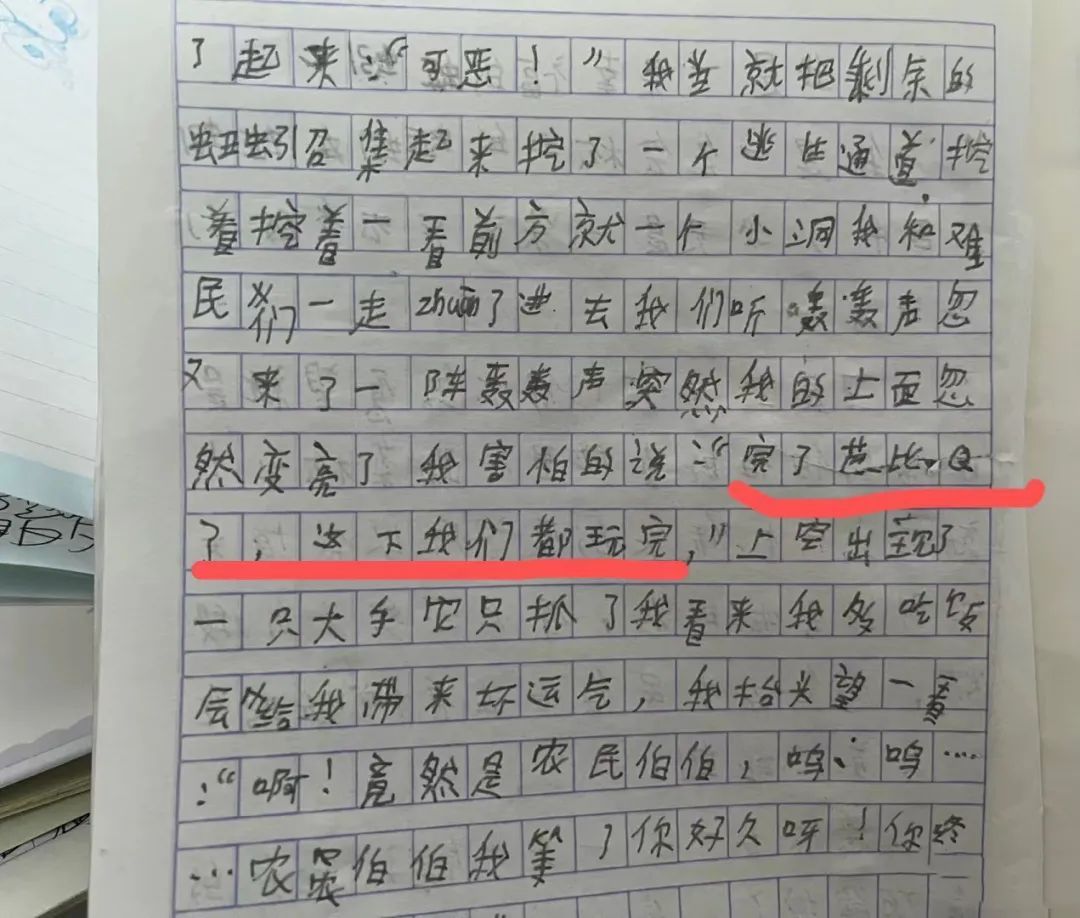 了起来:“可恶!”我就把剩余的
蚯蚓召集起来挖了一个逃生通道.挖
着挖着一看前方就一个小洞我和难
民们一走zhuan了进去我们听轰轰声忽
又来了一阵轰轰声突然我的上面忽
然变亮了我害怕的说:“完了芭比Q
了,这下我们都玩完,”上空出现了
一只大手它只抓了我看来我多吃饭
会给我带来坏运气,我抬头望一看
:“啊!竟然是农民伯伯,呜、呜…
…农民伯伯我等了你好久呀!你终